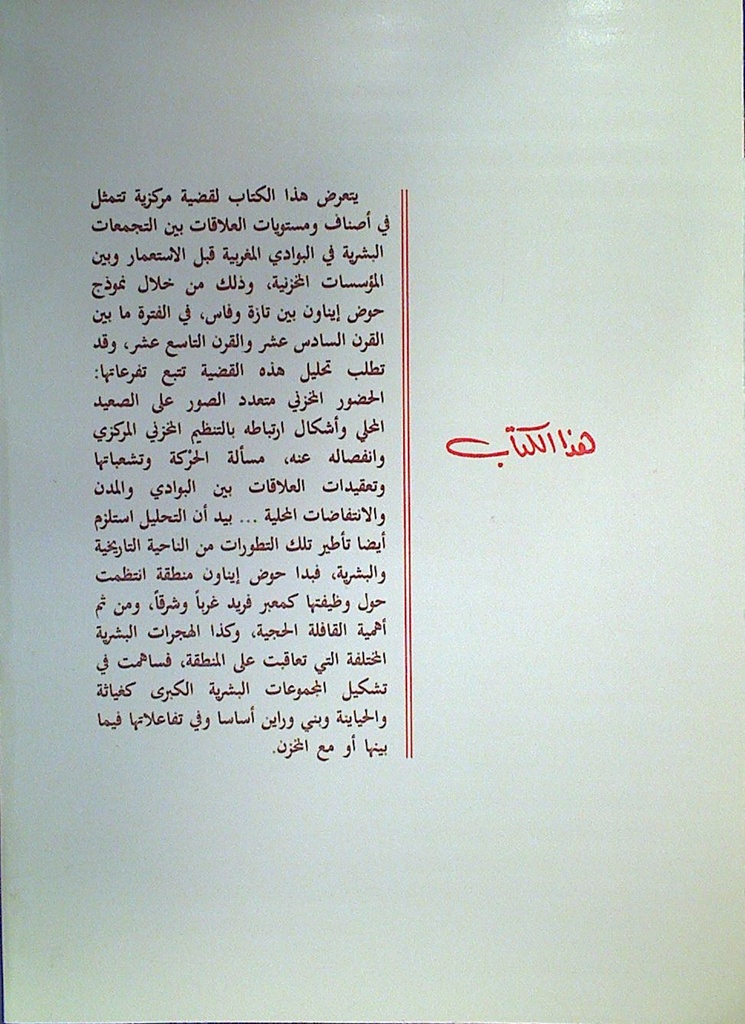 هذا الكتاب
يتعرض هذا الكتاب لقضية مركزية تتمثل
في أصناف ومستويات العلاقات بين التجمعات
البشرية في البوادي المغربية قبل الاستعمار وبين
المؤسسات المخزنية، وذلك من خلال نموذج
حوض إيناون بين تازة وفاس، في الفترة ما بين
القرن السادس عشر والقرن التاسع عشر، وقد
تطلب تحليل هذه القضية تتبع تفرعاتها:
الحضور المخزني متعدد الصور على الصعيد
المحلي وأشكال ارتباطه بالتنظيم المخزني المركزي
وانفصاله عنه، مسألة الحْركة وتشعباتها
وتعقيدات العلاقات بين البوادي والمدن
والانتفاضات المحلية ... بيد أن التحليل استلزم
أيضا تأطير تلك التطورات من الناحية التاريخية
والبشرية، فبدا حوض إيناون منطقة انتظمت
حول وظيفتها كمعبر فريد غرباً وشرقاً، ومن ثم
أهمية القافلة الحجية، وكذا الهجرات البشرية
المختلفة التي تعاقبت على المنطقة، فساهمت في
تشكيل المجموعات البشرية الكبرى كغياثة
والحياينة وبني وراين أساسا وفي تفاعلاتها فيما
بينها أو مع المخزن.